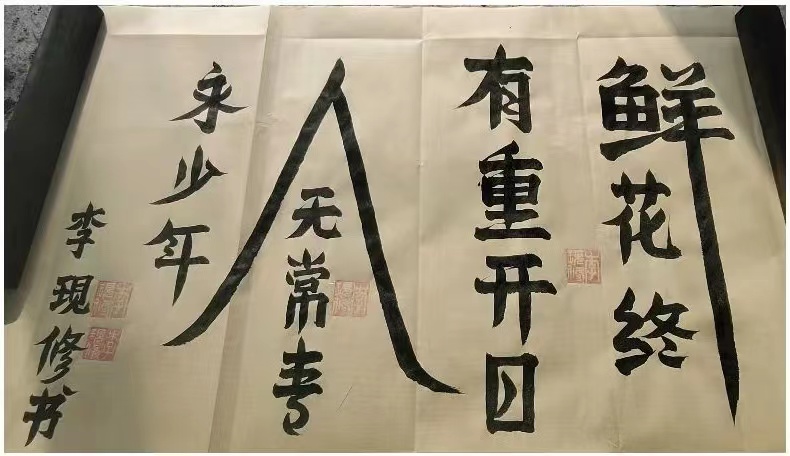 鲜花终
有重开日
人无常青
永少年
李现修书